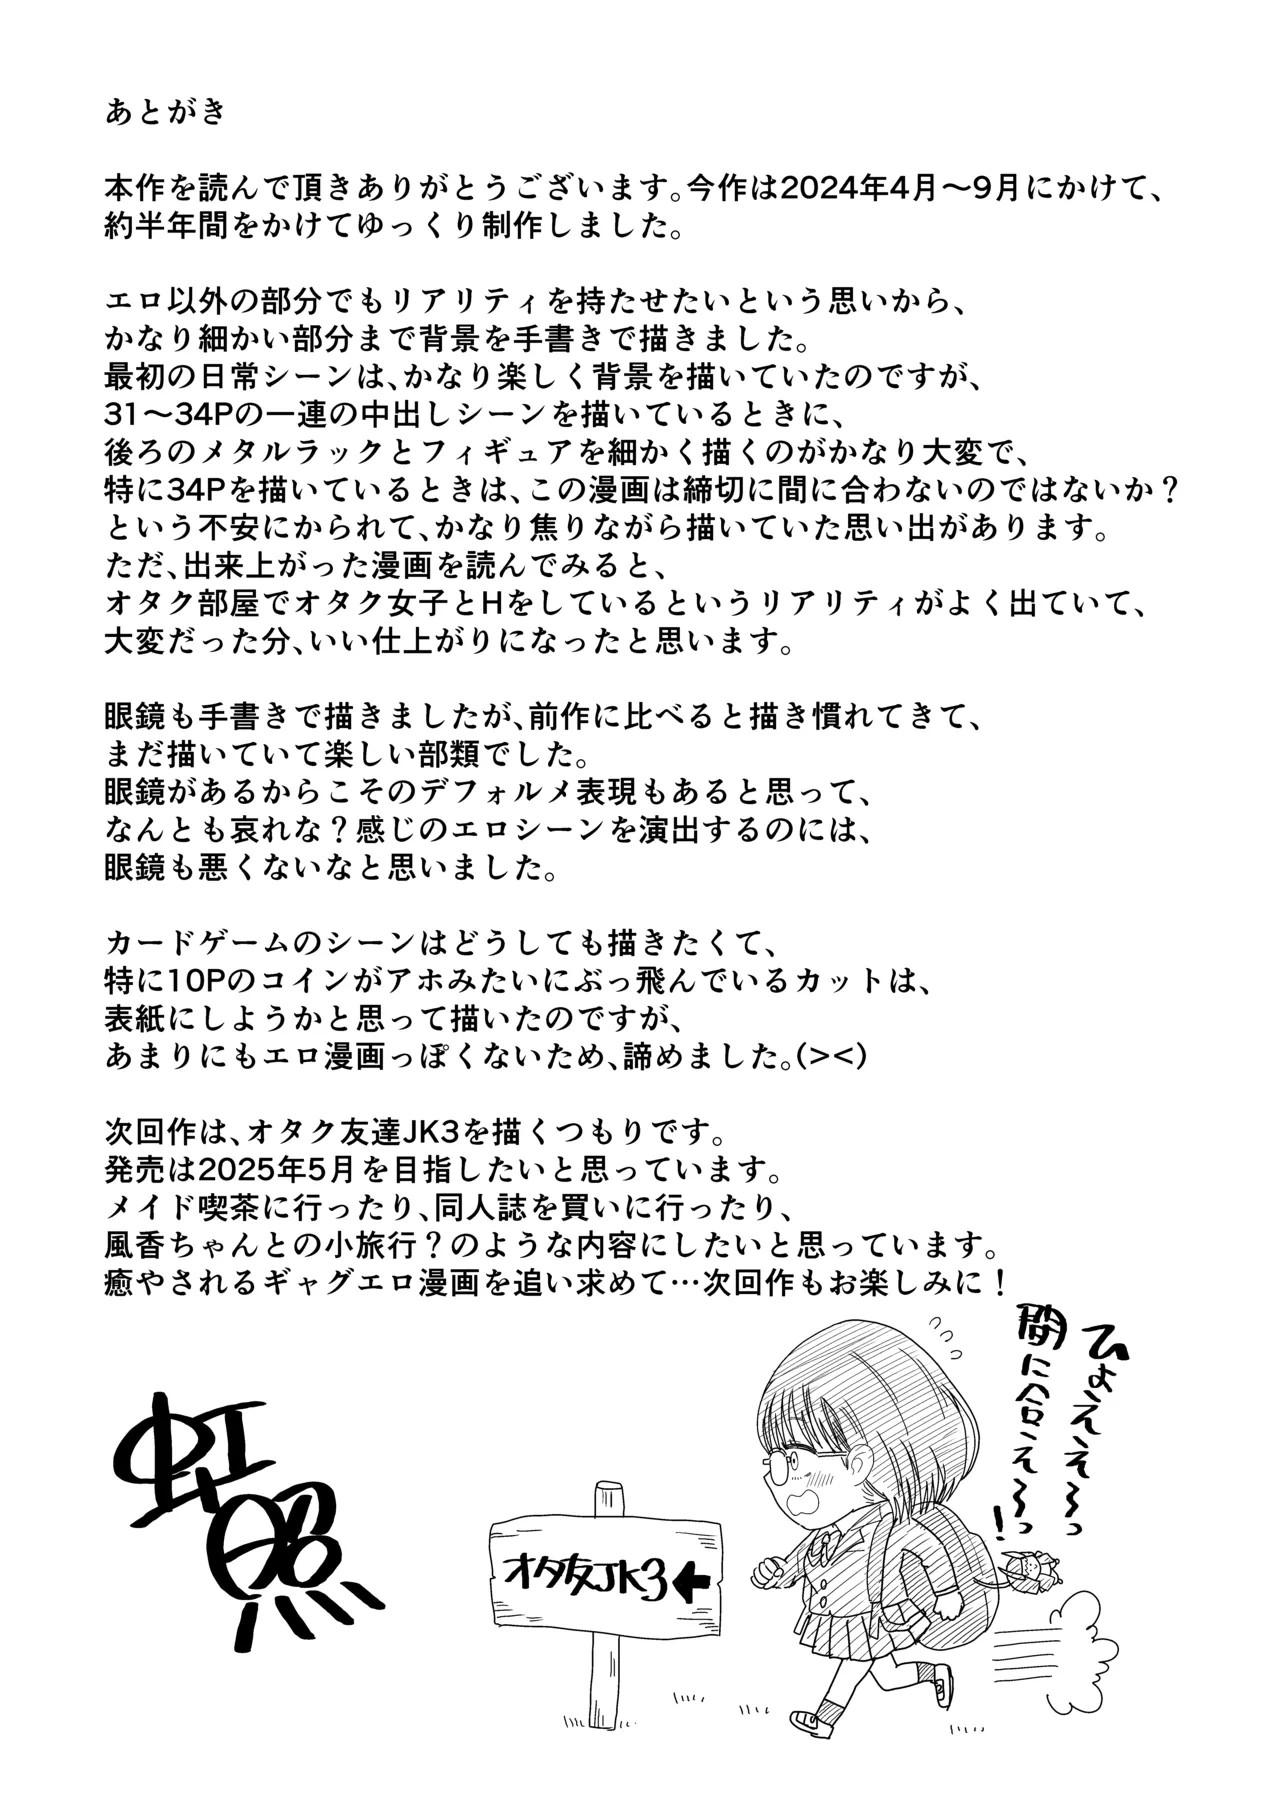 あとがき
本作を読んで頂きありがとうございます。今作は2024年4月～9月にかけて、
約半年間をかけてゆっくり制作しました。
エロ以外の部分でもリアリティを持たせたいという思いから、
かなり細かい部分まで背景を手書きで描きました。
最初の日常シーンは、かなり楽しく背景を描いていたのですが、
31～34Pの一連の中出しシーンを描いているときに、
後ろのメタルラックとフィギュアを細かく描くのがかなり大変で、
特に34Pを描いているときは、この漫画は締切に間に合わないのではないか？
という不安にかられて、かなり焦りながら描いていた思い出があります。
ただ、出来上がった漫画を読んでみると、
オタク部屋でオタク女子とHをしているというリアリティがよく出ていて、
大変だった分、いい仕上がりになったと思います。
眼鏡も手書きで描きましたが、前作に比べると描き慣れてきて、
まだ描いていて楽しい部類でした。
眼鏡があるからこそのデフォルメ表現もあると思って、
なんとも哀れな？感じのエロシーンを演出するのには、
眼鏡も悪くないなと思いました。
カードゲームのシーンはどうしても描きたくて、
特に10Pのコインがアホみたいにぶっ飛んでいるカットは、
表紙にしようかと思って描いたのですが、
あまりにもエロ漫画っぽくないため、諦めました。(><)
次回作は、オタク友達JK3を描くつもりです。
発売は2025年5月を目指したいと思っています。
メイド喫茶に行ったり、同人誌を買いに行ったり、
風香ちゃんとの小旅行？のような内容にしたいと思っています。
癒やされるギャグエロ漫画を追い求めて…次回作もお楽しみに！
ひょええぇ～っ
間に合えぇ～っ！
オタ友JK3←
虹照